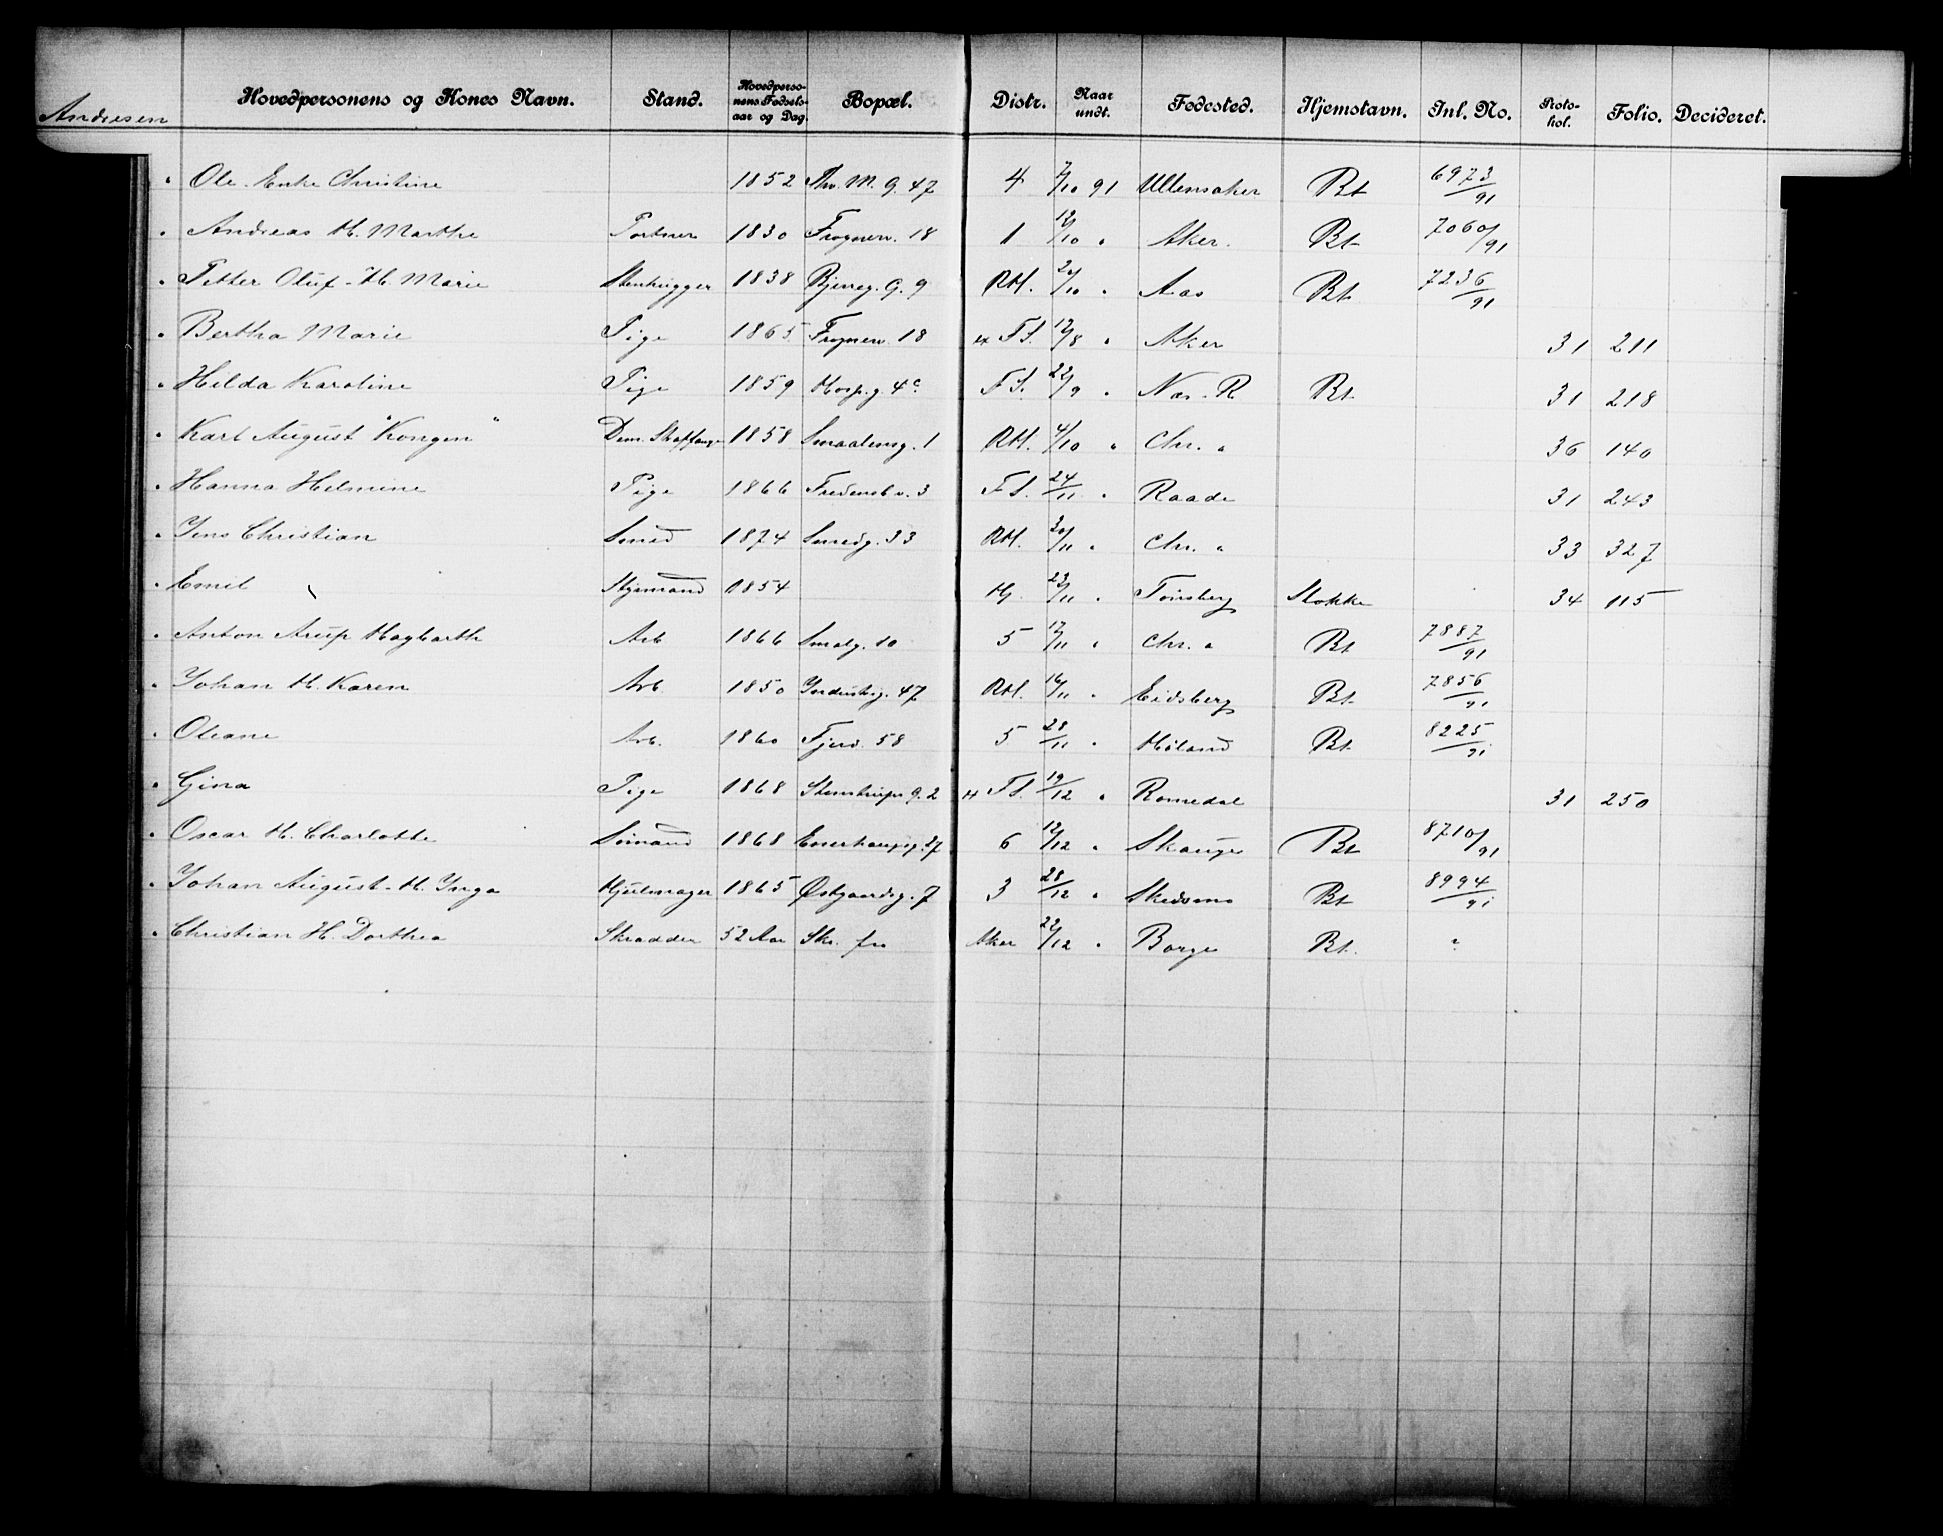 Andresen
Hovedpersonens og Kones Navn. Stand. Hovedpersonens Fødselsaar og Dag. Bopæl. Distr. Naar undt. Fødested. Hjemstavn. Inl. No. Protokol. Folio. Decideret.
" Ole - Enke Christine 1852 Thv. M. G. 47 4 7/10 91 Ullensaker Bt 6973/91
" Andreas H. Marthe Portner 1830 Frognerv. 18 1 12/10 " Aker. Bt 7060/91
" Petter Oluf - H. Marie Stenhugger 1838 Bjerreg. G. 9 RM. /10 " Aas Bt 7236/91
" Bertha Marie Pige 1865 Frognerv. 18 FS. 12/8 " Aker 31 211
" Hilda Karoline Pige 1859 Hosp.g. 4c FS. 22/9 " Næs - R Bt. 31 218
" Karl August "Kongen" 1858 Smaalensg. 1 RM. 4/10 " Chr. a 36 140
" Hanna Helmine Pige 1866 Fredensb.v. 3 FS. 24/11 " Raade 31 243
" Jens Christian Smed 1874 Smedg. 33 RM. 30/11 " Chr. a 33 327
" Emil Styrmand 1854 23/11 " Tønsberg Stokke 34 115
" Anton Arup Hagbarth Arb 1866 Smalg. 10 5 17/11 " Chr. a Bt 7887/91
" Johan H. Karen Arb. 1850 Industrig. 47 RM. 16/11 " Eidsberg Bt. 7856/91
" Oleane Arb. 1860 Fjerd. 58 5 28/11 " Høland Bt. 8225/91
" Gina Pige 1868 Stenstrups G. 2 FS. 19/12 " Romedal 31 250
" Oscar H. Charlotte Sømand 1868 Enerhaugsg. 27 6 12/12 " Skauger Bt 8710/91
" Johan August - H. Inga Hjulmager 1865 Østgaardsg. 7 3 28/12 " Skedsmo Bt 8994/91
" Christian H. Dorthea Skrædder 52 Aar Sk. fra Aker 22/12 " Borge Bt. ?